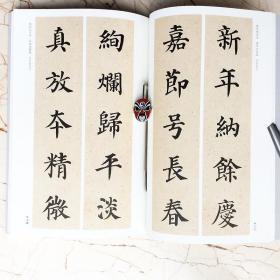 新年納餘慶
嘉節号長春
絢爛歸平淡
真放夲精微